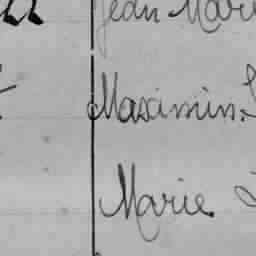 Jean Marie
Maximin.
Marie